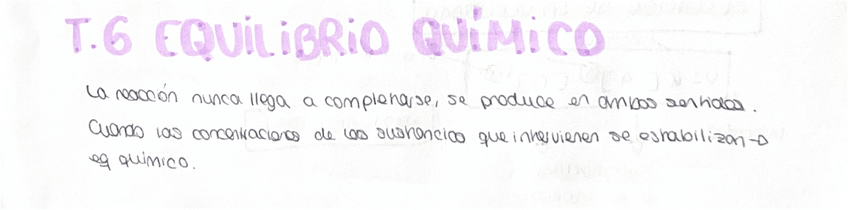 T.6 EQUILIBRIO QUÍMICO
La reacción nunca llega a completarse, se produce en ambos sentidos.
Cuando las concentraciones de las sustancias que intervienen se estabilizan →
eq químico.